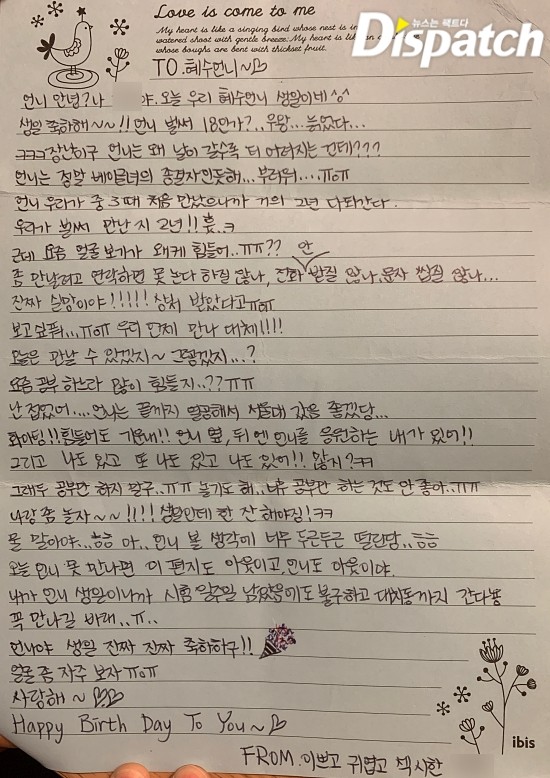 Love is come to me
My heart is like a singing bird whose nest is in
watered shoot with gentle breeze. My heart is like an
whose boughs are bent with thickset fruit.
뉴스는 팩트다
Dispatch
TO. 혜수언니~♡
언니 안녕? 나 야. 오늘 우리 혜수언니 생일이네 ^^
생일 축하해~~!! 언니 벌써 18인가?.. 우왕... 늙었다...
ㅋㅋㅋ장난이구 언니는 왜 날이 갈수록 더 어려지는 건데???
언니는 정말 베이글녀의 종결자인듯해... 부러워....ㅠㅁㅠ
언니 우리가 중3때 처음 만났으니까 거의 2년 다되간다.
우리가 벌써 만난지 2년!! 흕.ㅋ
근데 요즘 얼굴보기가 왜케 힘들어..ㅠㅠ??
좀 만날려고 연락하면 못 논다 하질 않나, 전화 안 받질 않나, 문자 씹질 않나...
진짜 실망이야!!!!! 상처 받았다고ㅠㅁㅠ
보고싶퓨...ㅠㅁㅠ 우리 언제 만나 대체!!!!
오늘은 만날 수 있겠지~ 그렇겠지...?
요즘 공부 하느라 많이 힘들지..??ㅠㅠ
난 접었어.... 언니는 끝까지 열공해서 서울대 갔음 좋겠당...
화이팅!! 힘들어도 기운내!! 언니 옆, 뒤엔 언니를 응원하는 내가 있어!!
그리고 나도 있고 또 나도 있고 나도 있어!! 많지?ㅋㅋ
그래두 공부만 하지 말구..ㅠㅠ 놀기도 해.. 너무 공부만 하는 것도 안 좋아..ㅠㅠ
나랑 좀 놀자~~!!!! 생일인데 한 잔 해야징!ㅋㅋ
물 말이야..ㅎㅎ 아.. 언니 볼 생각에 너무 두근두근 떨린당..ㅎㅎ
오늘 언니 못 만나면 이 편지도 아웃이고 언니도 아웃이야.
내가 언니 생일이니까 시험 일주일 남았음에도 불구하고 대치동까지 간다뿅
꼭 만나길 바래..ㅠ..
언니야 생일 진짜 진짜 축하하구!!
얼굴 좀 자주 보자 ㅠㅁㅠ
사랑해~♡♡
Happy Birth Day To You~♡
FROM. 이쁘고 귀엽고 섹시한
ibis